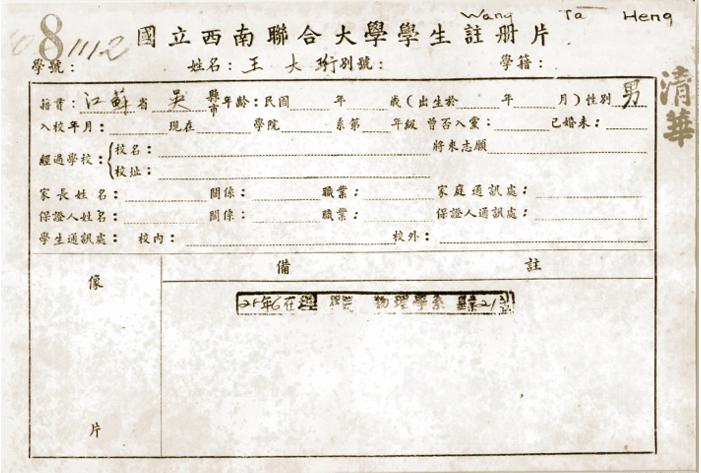 Wang Ta Heng
國立西南聯合大學學生註册片
學號： 姓名：王大珩 別號： 學籍：
清華
籍貫：江蘇省 吳 縣市 年齡：民國 年 歲（出生於 年 月）性別 男
入校年月： 現在 學院 系第 年級 曾否入黨： 已婚未：
經過學校：校名： 將來志願
校址：
家長姓名： 關係： 職業： 家庭通訊處：
保證人姓名： 關係： 職業： 保證人通訊處：
學生通訊處： 校內： 校外：
像片 備註
物理學系